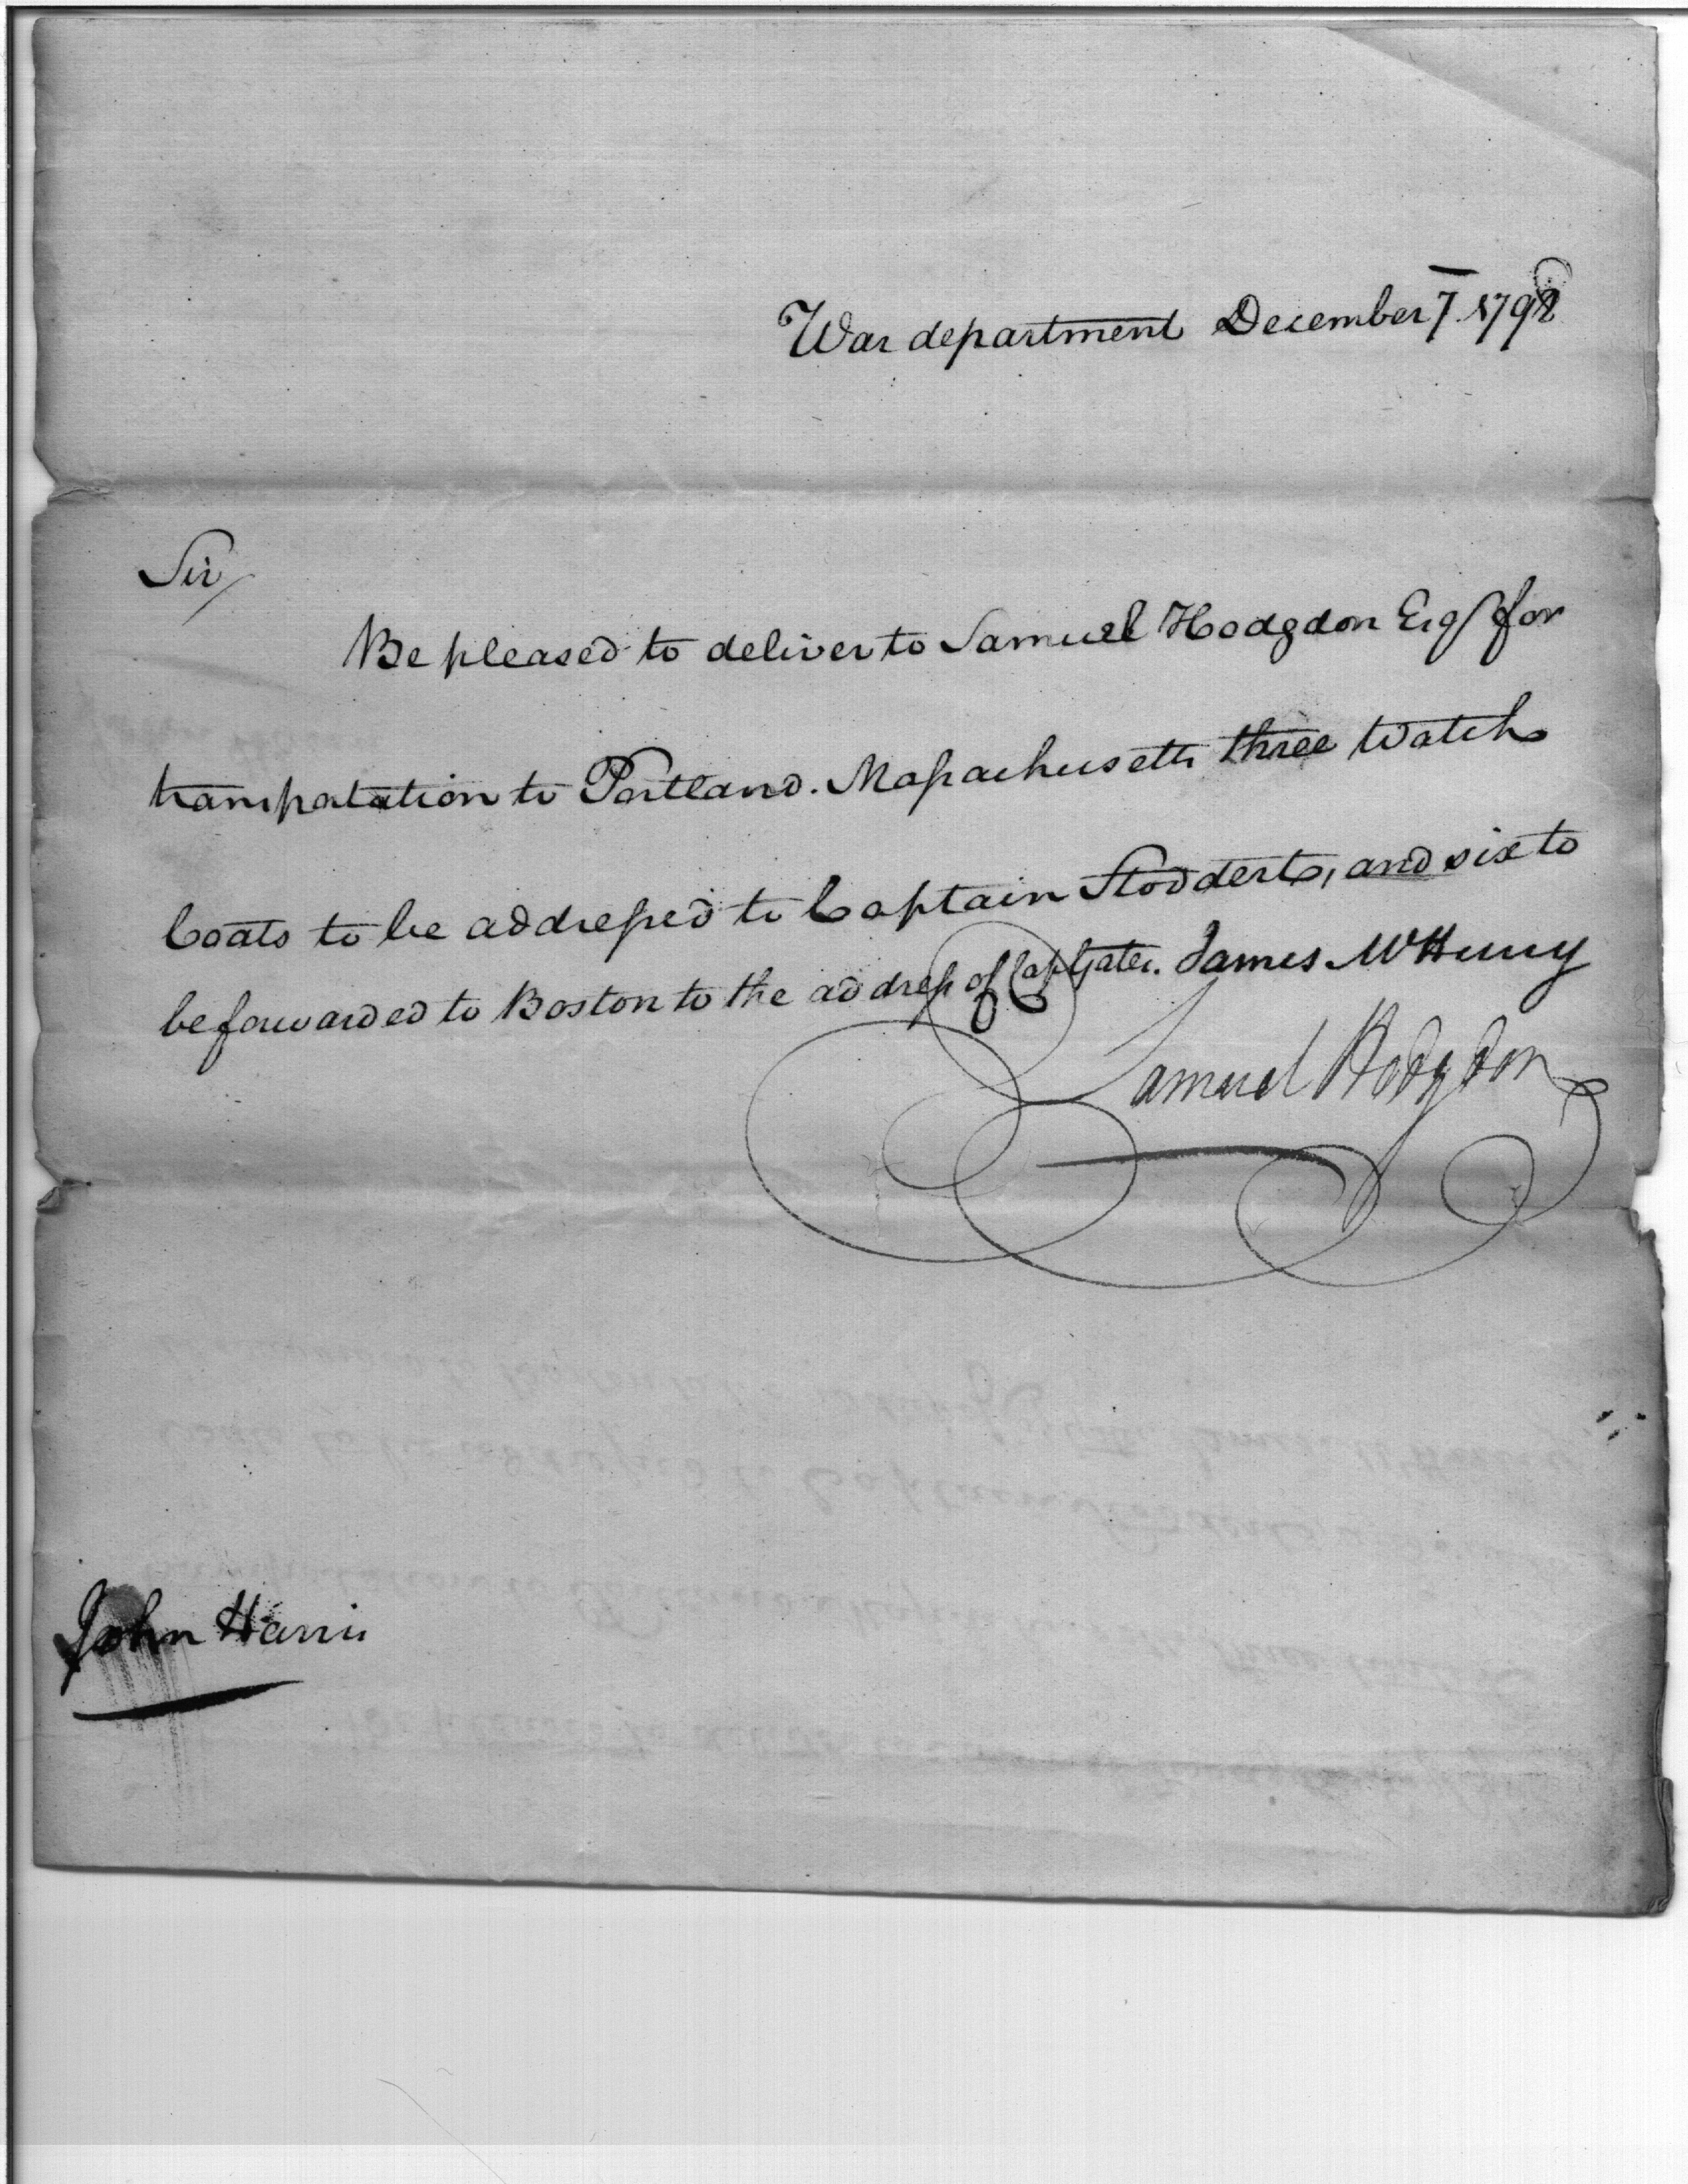 War department December 7 1798
Sir
Be pleased to deliver to Samuel Hodgdon Esq for
transpotation to Portland. Massachusetts three Watch
Coats to be addressed to Captain Stoddert, and six to
be forwarded to Boston to the address of Capt Gates. James McHenry
Samuel Hodgdon
John Harris